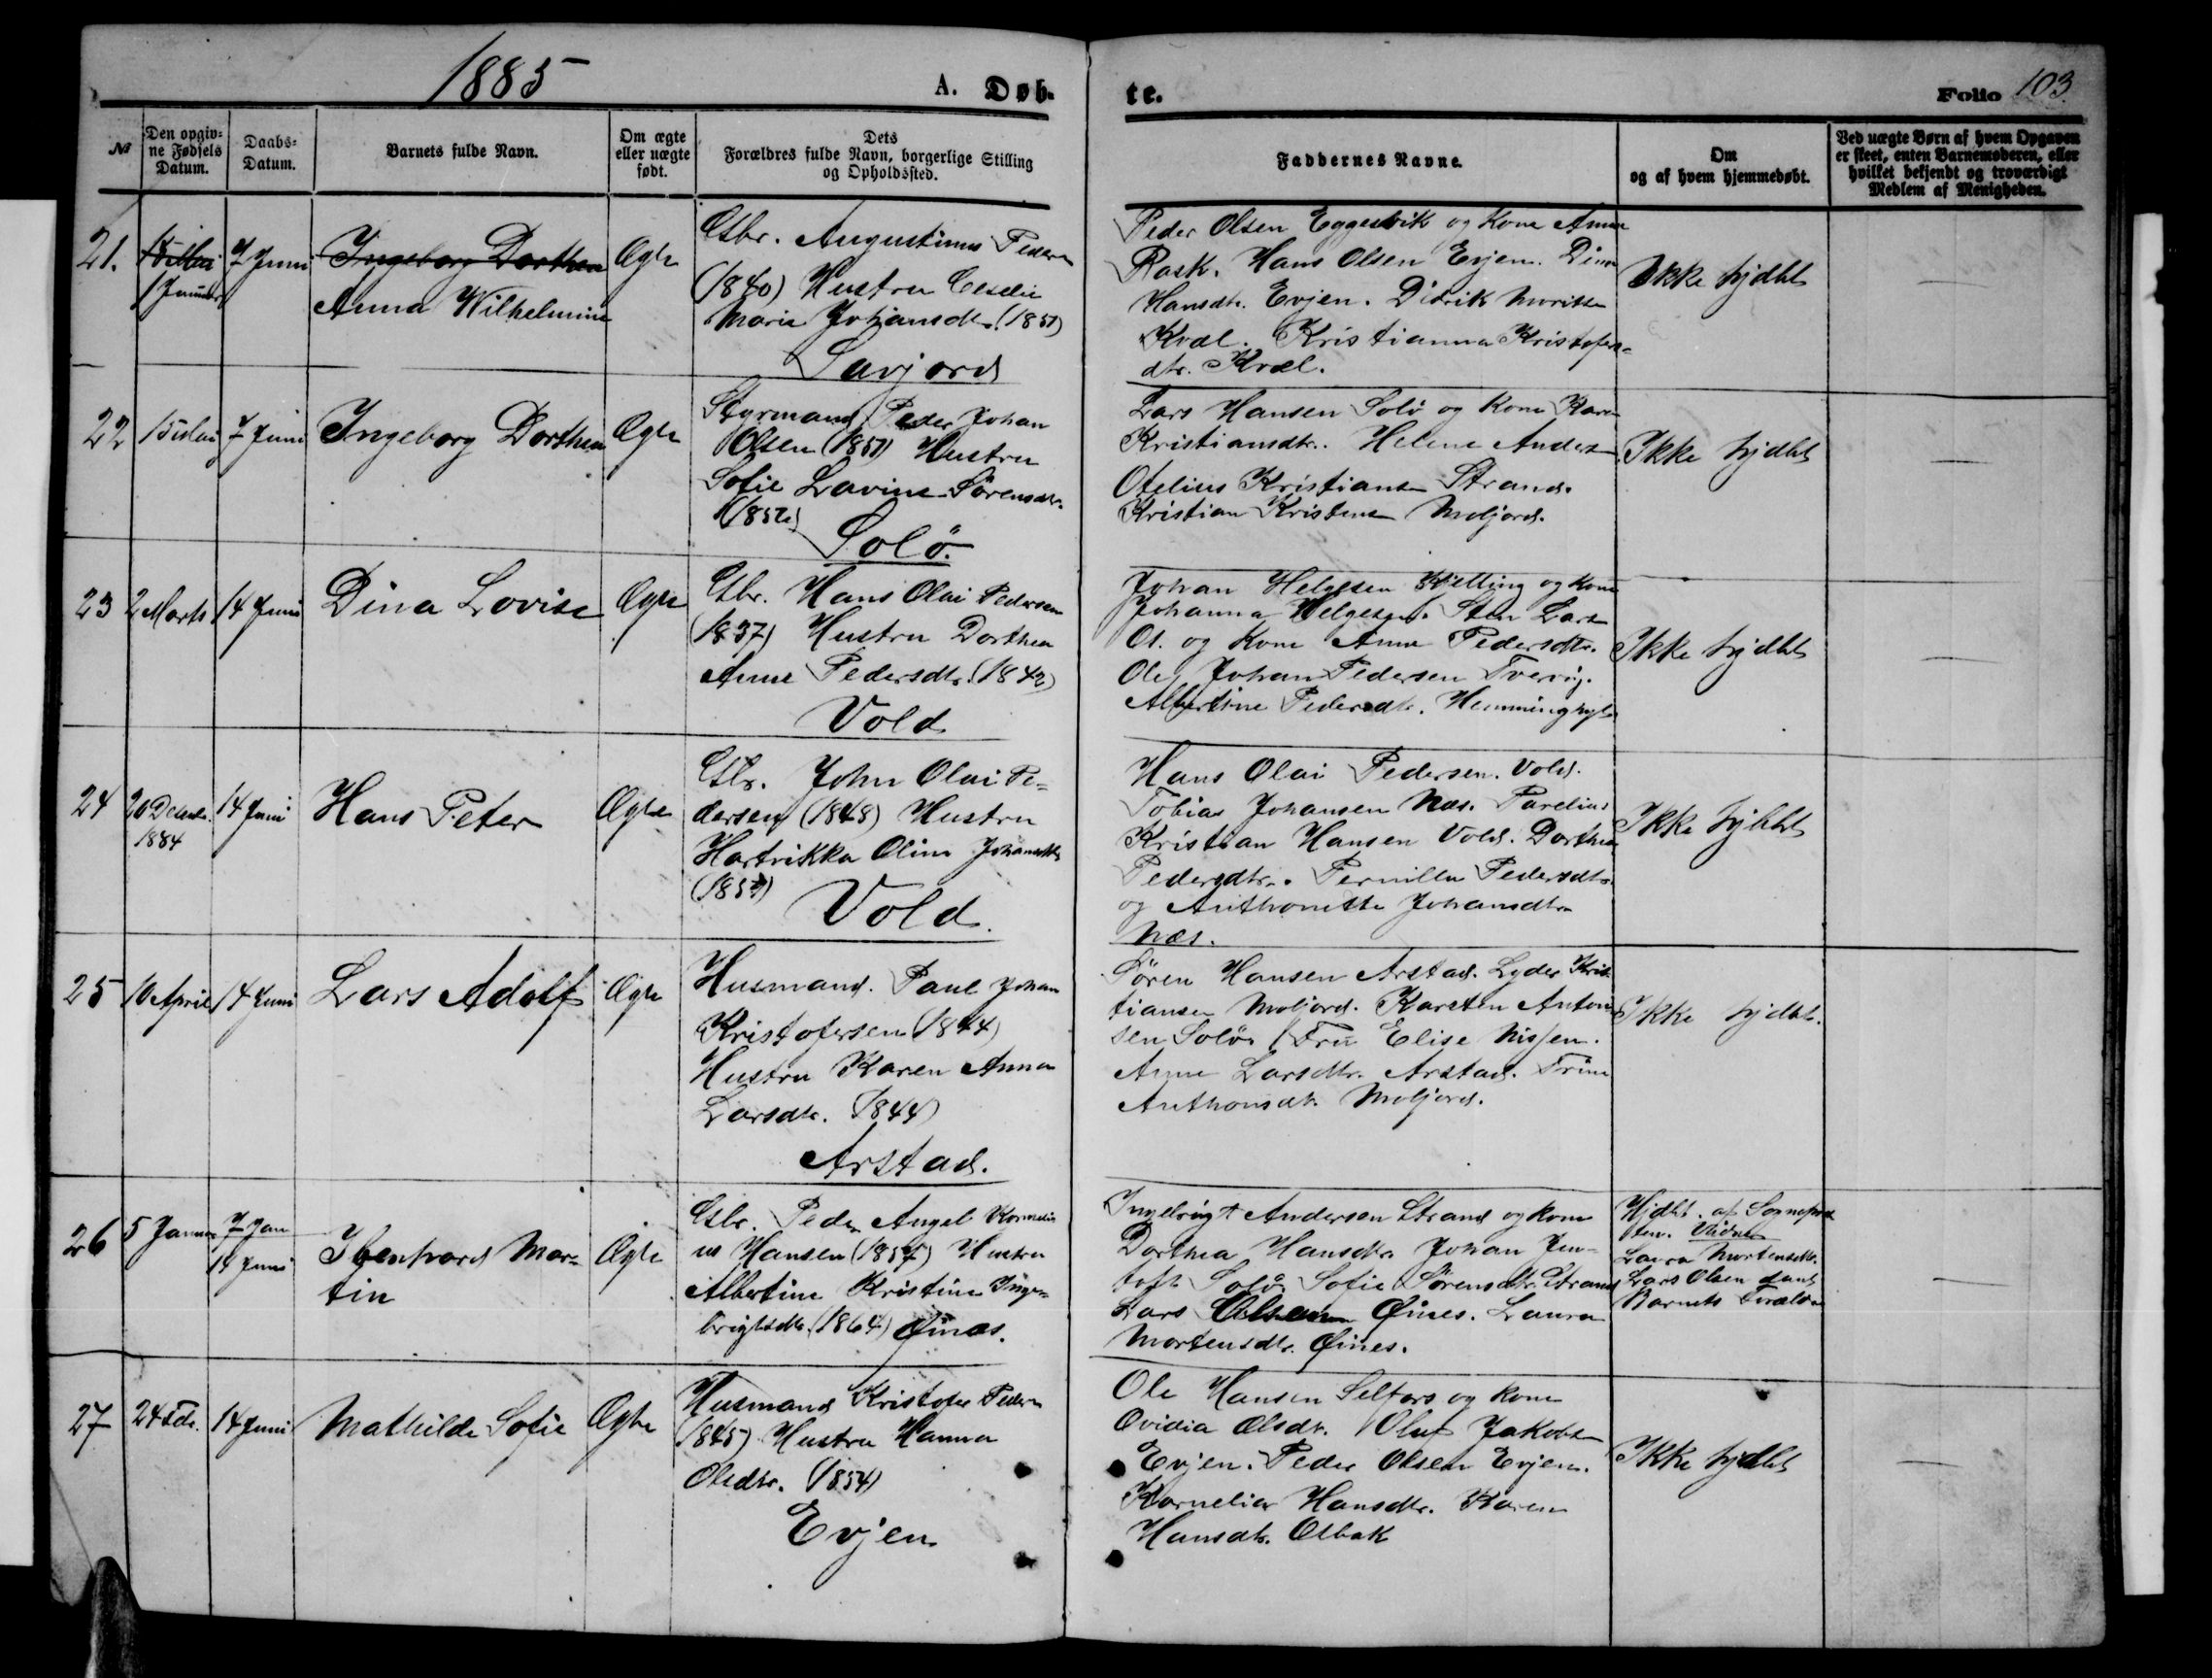 1885
A. Døb-
te.
Folio 103.
№
Den opgiv-
ne Fødsels
Datum.
Daabs-
Datum.
Barnets fulde Navn.
Om ægte
eller uægte
født.
Dets
Forældres fulde Navn, borgerlige Stilling
og Opholdssted.
Faddernes Navne.
Om
og af hvem hjemmedøbt.
Ved uægte Børn af hvem Opgaven
er skeet, enten Barnemoderen, eller
hvilket bekjendt og troværdigt
Medlem af Menigheden.
21.
1 Januar
7 Juni
Ingeborg Dorthea
Anna Wilhelmine
Ægte
Gbr. Augustinus Pedersen
(1840) Hustru
Marie Johansdtr. (1851)
Savjord
Peder Olsen Eggesvik og Kone Anne
Rask. Hans Olsen Evjen. Dina
Hansdtr. Evjen. Didrik Moritsen
Kvæl. Kristianna Kristofers-
dtr. Kvæl.
Ikke hjdbt
22
15 Mai
7 Juni
Ingeborg Dorthea
Ægte
Styrmand Peder Johan
Olsen (1851) Hustru
Sofie Lavine Sørensdtr.
Solö.
Lars Hansen Solö og Kone Karen
Kristiansdtr. Helene Anders
Otelius Kristiansen Strand.
Kristian Kristensen Moljord.
Ikke hjdbt
23
2 Marts
14 Juni
Dina Lovise
Ægte
Gbr. Hans Olai Pedersen
(1837) Hustru Dorthea
Anne Pedersdtr. (1842)
Vold
Johan Helgesen Kjelling og Kone
Johanna Helgesen. Sten Lars
Ol. og Kone Anne Pedersdtr.
Ole Johan Pedersen Tvervig.
Albertine Pedersdtr.
Ikke hjdbt
24
20 Decbr.
1884
14 Juni
Hans Peter
Ægte
Gbr. John Olai Pe-
dersen (1848) Hustru
Hartvikka Oline Johansdtr.
Vold.
Hans Olai Pedersen. Vold.
Tobias Johansen Næs. Parelius
Kristian Hansen Vold. Dorthea
Pedersdtr. Pernille Pedersdtr.
og Anthonette Johansdtr.
Næs.
Ikke hjdbt
25
10 April
14 Juni
Lars Adolf
Ægte
Husmand. Paul Johan
Kristofersen (1844)
Hustru Karen Anna
Larsdtr. (1844)
Arstad.
Sören Hansen Arstad. Lyder Kris-
tiansen Moljord. Karsten Anton
sen Solö. Fru Elise Nissen.
Anne Larsdtr. Arstad. Trine
Anthonsdtr. Moljord.
Ikke hjdbt.
26
5 Januar
7 Jan
14 Juni
Ibenhard Mar-
tin
Ægte
Gbr. Peder Angel Korneli
us Hansen (1857) Hustru
Albertine Kristine Inge-
brigtsdtr. (1864) Øines.
Ingebrigt Andersen Strand og Kone
Dorthea Hansdtr. Johan Jen-
toft Solö. Sofie Sørensdtr. Strand
Lars Olsen Øines. Laura
Mortensdtr. Øines.
Hjdbt. af Sognepræ
sten. Vidner
Laura Mortensdtr.
Lars Olsen samt
Barnets Forældre
27
24 Feb.
14 Juni
Mathilde Sofie
Ægte
Husmand Kristofer Pedersen
(1845) Hustru Hanna
Olsdtr. (1854)
Evjen
Ole Hansen Selfors og Kone
Ovidia Olsdtr. Oluf Jakobsen
Evjen. Peder Olsen Evjen.
Kornelia Hansdtr. Karen
Hansdtr. Olbak
Ikke hjdbt